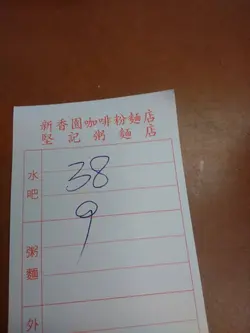 新香園咖啡粉麵店
堅記粥麵店
水吧
38
9
粥麵
外